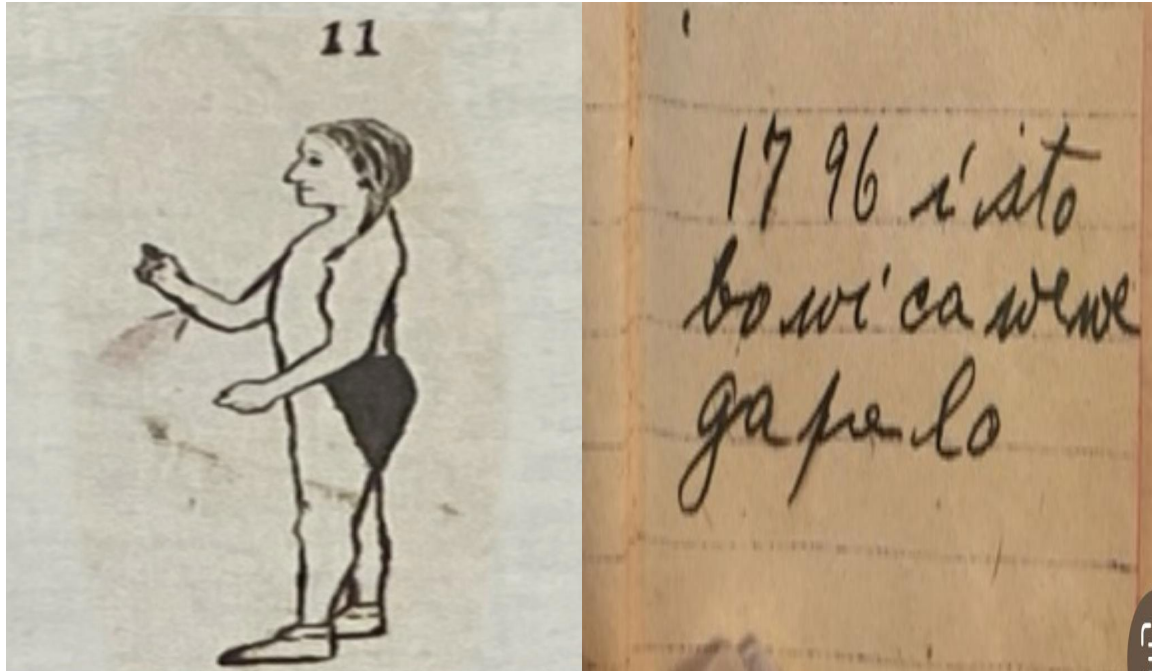 11
1796 išto
bowi ca wewe
gapelo